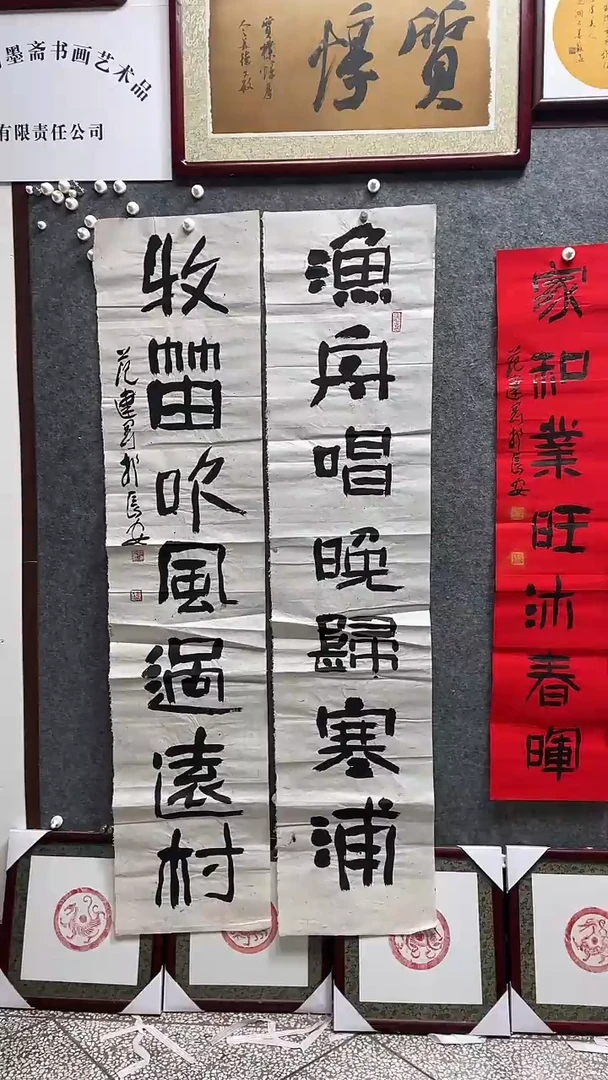 墨斋书画艺术品
有限责任公司
質惇
漁舟唱晚歸塞浦
牧笛吹風過遠村
范建 於長安
家和業旺沐春暉
范建 於長安